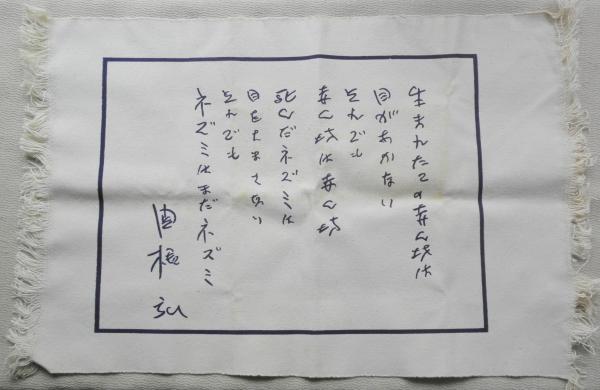 生まれたての赤ん坊は
目があかない
それでも
赤ん坊は赤ん坊
死んだネズミは
目をさまさない
それでも
ネズミはまだネズミ
白根弘